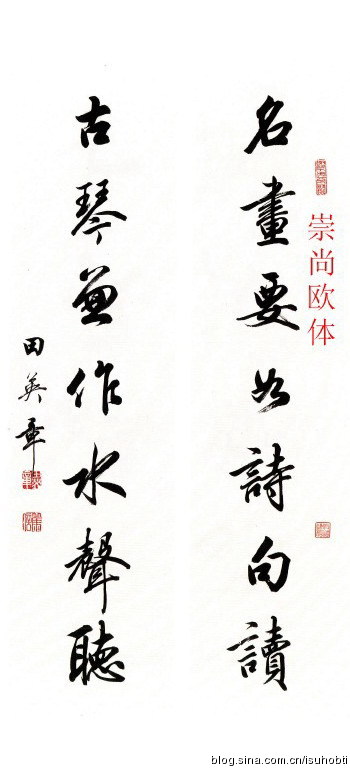 崇尚欧体
名畫要如詩句讀
古琴兼作水聲聽
田英章
blog.sina.com.cn/isuhobti